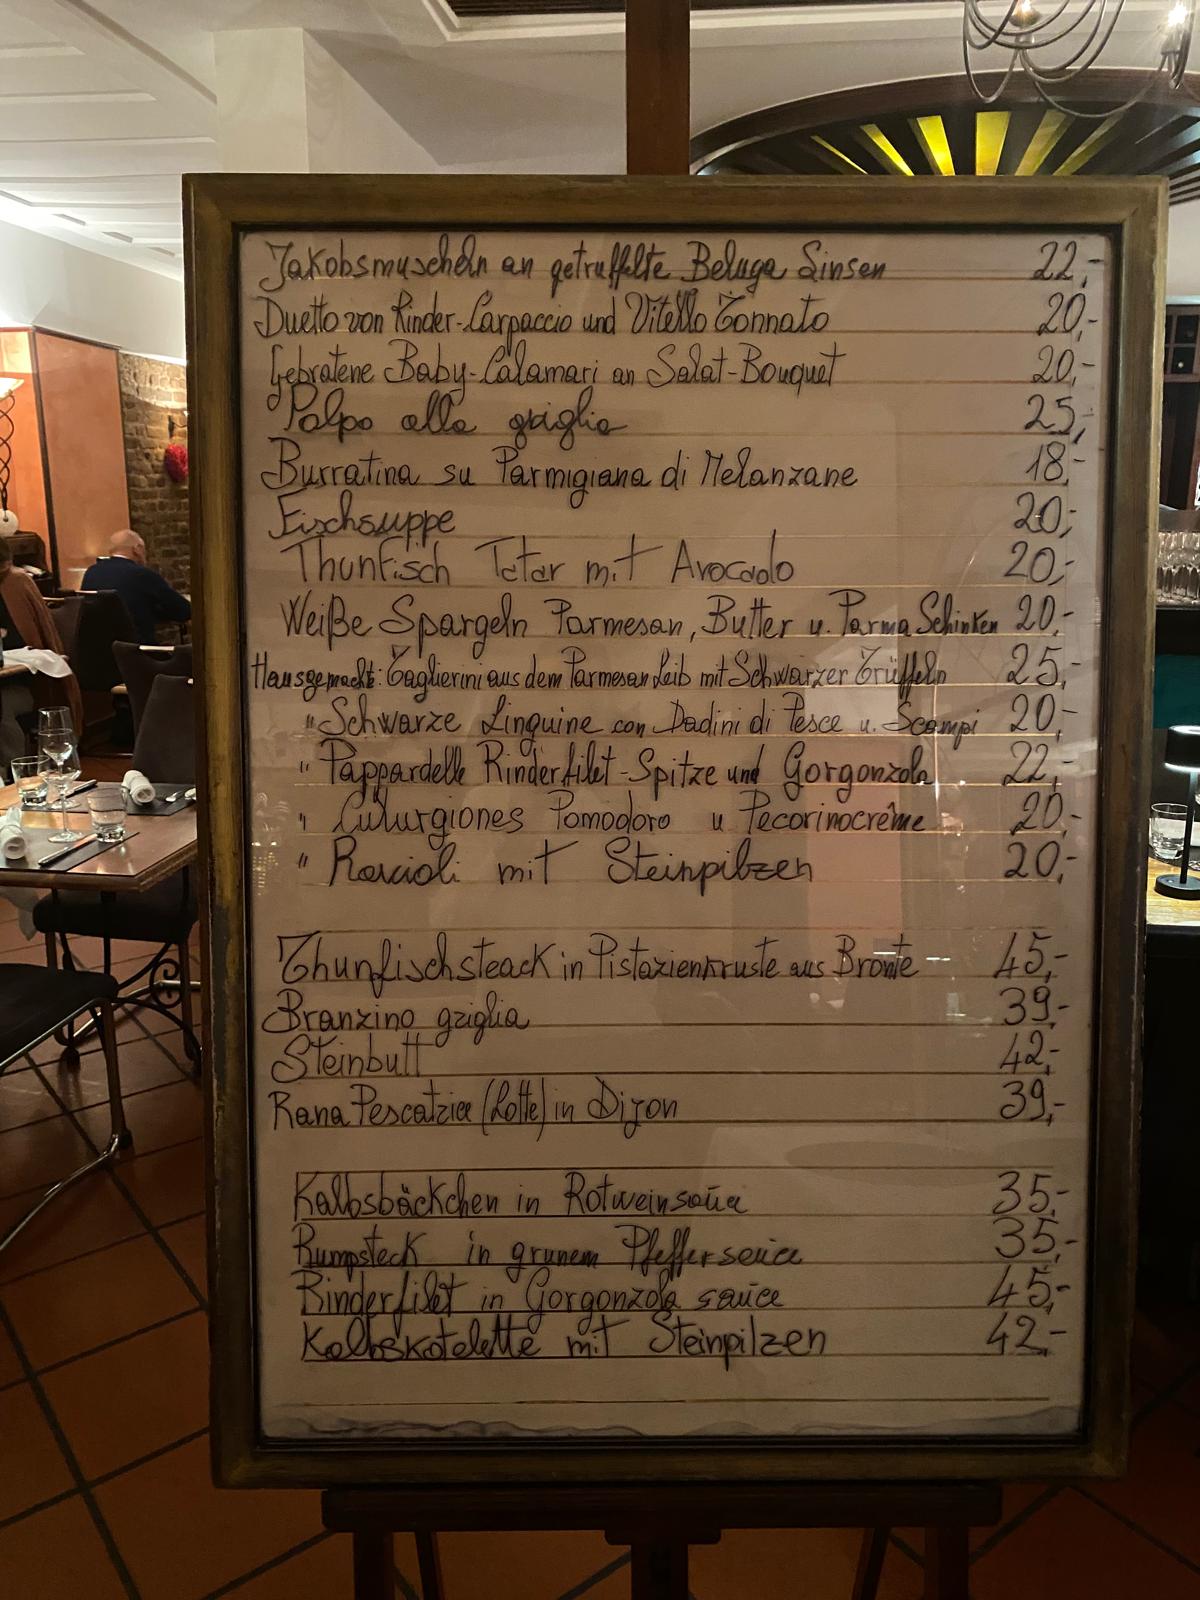 Jakobsmuscheln an getruffelte Beluga Linsen 22,-
Duetto von Rinder-Carpaccio und Vitello Tonnato 20,-
Gebratene Baby-Calamari an Salat-Bouquet 20,-
Polpo alla griglia 25,-
Burratina su Parmigiana di Melanzane 18,-
Fischsuppe 20,-
Thunfisch Tatar mit Avocado 20,-
Weiße Spargeln Parmesan, Butter u. Parma Schinken 20,-
Hausgemacht: Taglierini aus dem Parmesan Leib mit Schwarzer Trüffeln 25,-
" Schwarze Linguine con Dadini di Pesce u. Scampi 20,-
" Pappardelle Rinderfilet-Spitze und Gorgonzola 22,-
" Culurgiones Pomodoro u Pecorinocrême 20,-
" Ravioli mit Steinpilzen 20,-
Thunfischsteack in Pistazienkruste aus Bronte 45,-
Branzino griglia 39,-
Steinbutt 42,-
Rana Pescatrice (Lotte) in Dijon 39,-
Kalbsbäckchen in Rotweinsauce 35,-
Rumpsteck in grunem Pfeffersauce 35,-
Rinderfilet in Gorgonzola sauce 45,-
Kalbskotelette mit Steinpilzen 42,-